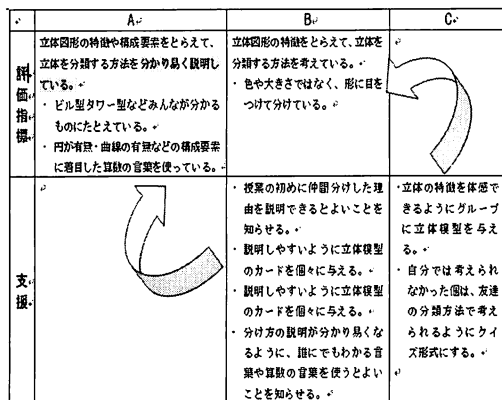 A B C
評価指標
立体図形の特徴や構成要素をとらえて、
立体を分類する方法を分かり易く説明し
ている。
・ ビル型タワー型などみんなが分かる
ものにたとえている。
・ 円が有無・曲線の有無などの構成要素
に着目した算数の言葉を使っている。
立体図形の特徴をとらえて、立体を
分類する方法を考えている。
・ 色や大きさではなく、形に目を
つけて分けている。
支援
・ 授業の初めに仲間分けした理
由を説明できるとよいことを
知らせる。
・ 説明しやすいように立体模型
のカードを個々に与える。
・ 説明しやすいように立体模型
のカードを個々に与える。
・ 分け方の説明が分かり易くな
るように、誰にでもわかる言
葉や算数の言葉を使うとよい
ことを知らせる。
・立体の特徴を体感で
きるようにグループ
に立体模型を与え
る。
・ 自分では考えられ
なかった個は、友達
の分類方法で考え
られるようにクイ
ズ形式にする。